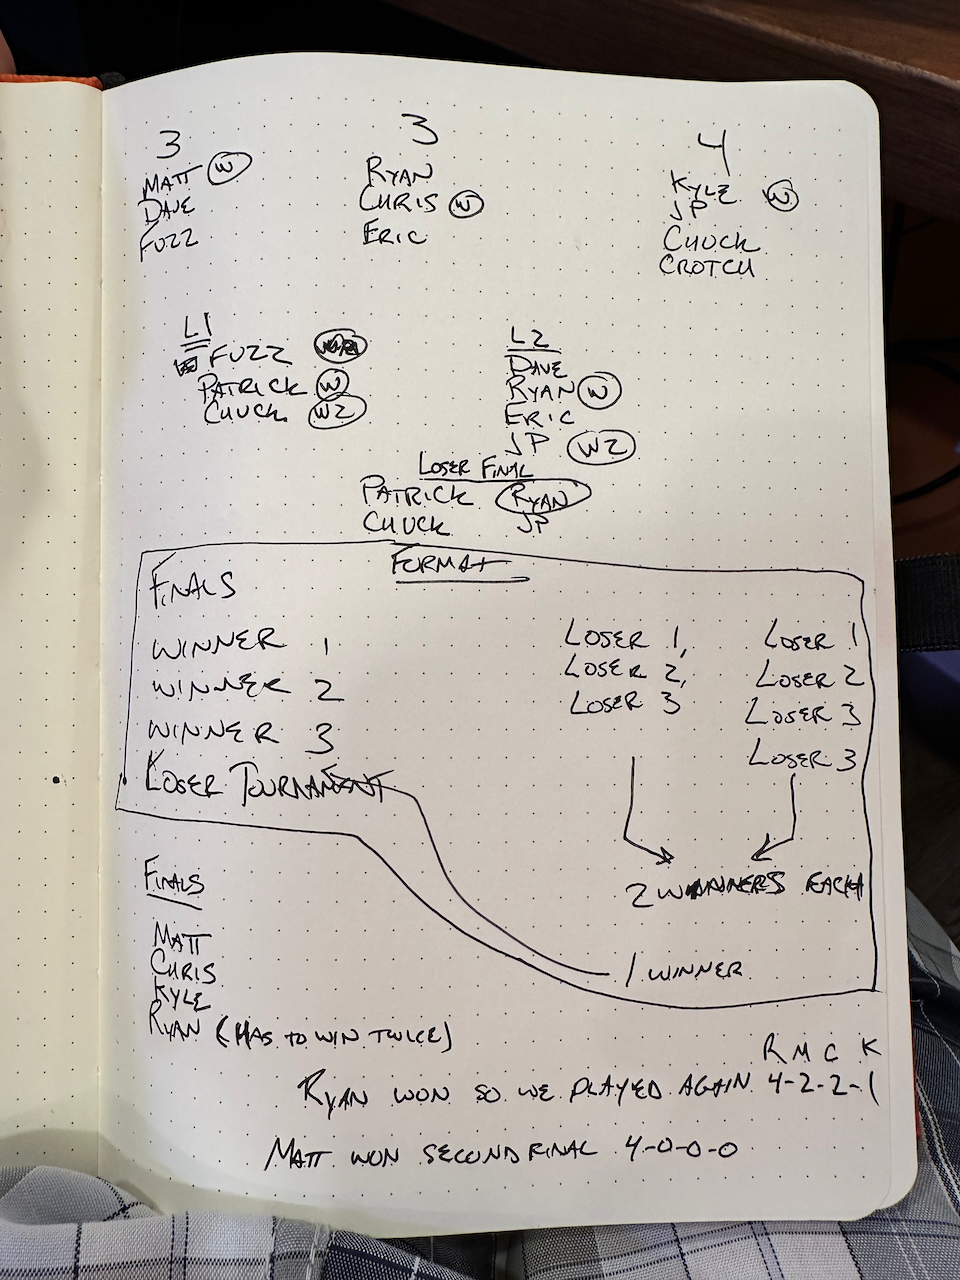 3
MATT W
DAVE
FUZZ
3
RYAN
CHRIS W
ERIC
4
KYLE W
JP
CHUCK
CROTCH
L1
FUZZ
PATRICK W
CHUCK W2
L2
DAVE
RYAN W
ERIC
JP W2
LOSER FINAL
PATRICK RYAN
CHUCK JP
FORMAT
FINALS
WINNER 1
WINNER 2
WINNER 3
LOSER TOURNAMENT
LOSER 1,
LOSER 2,
LOSER 3
LOSER 1
LOSER 2
LOSER 3
LOSER 3
2 WINNERS EACH
1 WINNER
FINALS
MATT
CHRIS
KYLE
RYAN (HAS TO WIN TWICE)
R M C K
RYAN WON SO WE PLAYED AGAIN. 4-2-2-1
MATT WON SECOND FINAL 4-0-0-0